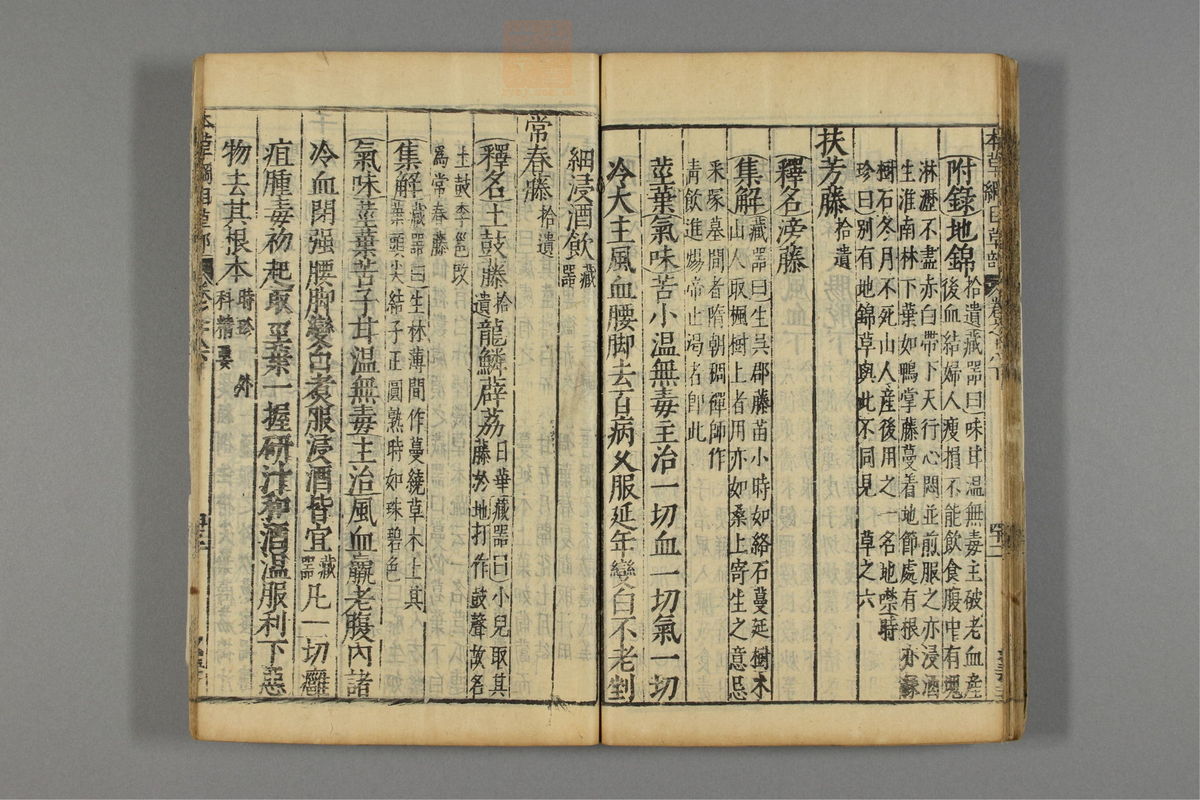 附錄地錦拾遺藏器曰味甘温無毒主破老血產
後血結婦人瘦損不能飲食腹中有塊
淋瀝不盡赤白帶下天行心悶並煎服之亦浸酒
生淮南林下葉如鴨掌藤蔓着地節處有根亦緣
樹石冬月不死山人産後用之一名地噤時
珍曰別有地錦草與此不同見草之六
扶芳藤拾遺
釋名滂藤
集解藏器曰生吳郡藤苗小時如絡石蔓延樹木
山人取楓樹上者用亦如桑上寄生之意忌
釆塚墓間者隋朝稠禪師作
青飲進煬帝止渴者卽此
莖葉氣味苦小温無毒主治一切血一切氣一切
冷大主風血腰脚去百病乆服延年變白不老剉
細浸酒飲藏器
常春藤拾遺
釋名土鼓藤拾遺龍鱗薜荔日華藏器曰小兒取其
藤於地打作鼓聲故名
土鼓李邕改
爲常春藤
集解藏器曰生林薄間作蔓繞草木上其
葉頭尖結子正圓熟時如珠碧色
氣味莖葉苦子甘温無毒主治風血羸老腹内諸
冷血閉强腰脚變白煮服浸酒皆宜藏器凡一切癰
疽腫毒初起取莖葉一握研汁和酒温服利下惡
物去其根本時珍 外科精要
本草綱目草部